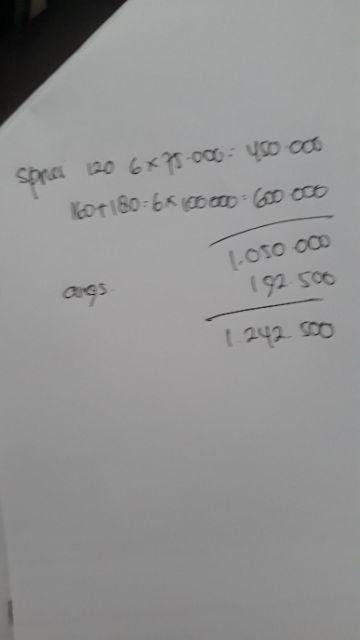 Sprei 120 6 x 75.000 = 450.000
160 + 180 = 6 x 100000 = 600.000
1.050.000
args. 192.500
1.242.500